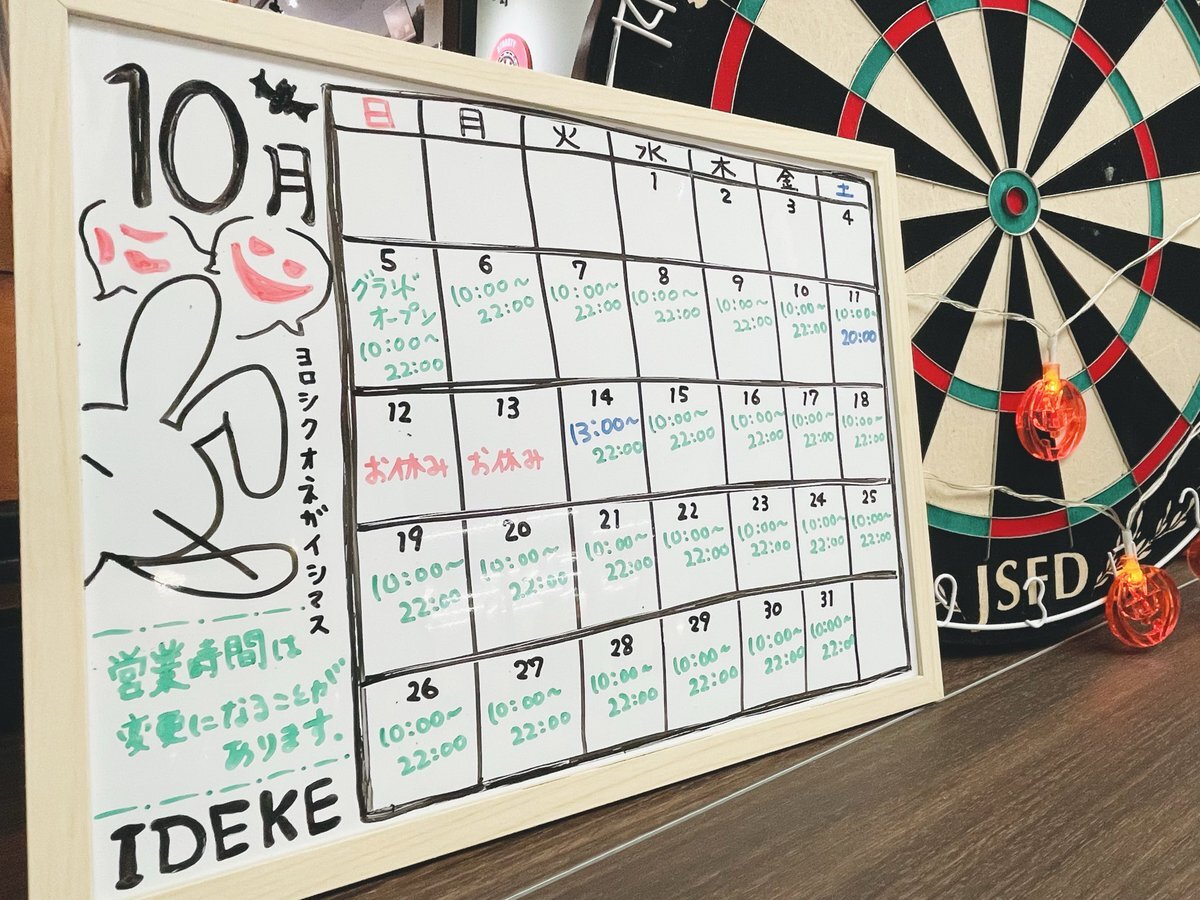 10月
ヨロシクオネガイシマス
営業時間は
変更になることが
あります。
IDEKE
日 月 火 水 木 金 土
1 2 3 4
5 6 7 8 9 10 11
グランド
オープン
10:00~ 10:00~ 10:00~ 10:00~ 10:00~ 10:00~ 10:00~
22:00 22:00 22:00 22:00 22:00 22:00 20:00
12 13 14 15 16 17 18
お休み お休み 13:00~ 10:00~ 10:00~ 10:00~ 10:00~
22:00 22:00 22:00 22:00 22:00
19 20 21 22 23 24 25
10:00~ 10:00~ 10:00~ 10:00~ 10:00~ 10:00~ 10:00~
22:00 22:00 22:00 22:00 22:00 22:00 22:00
26 27 28 29 30 31
10:00~ 10:00~ 10:00~ 10:00~ 10:00~ 10:00~
22:00 22:00 22:00 22:00 22:00 22:00
JSFD